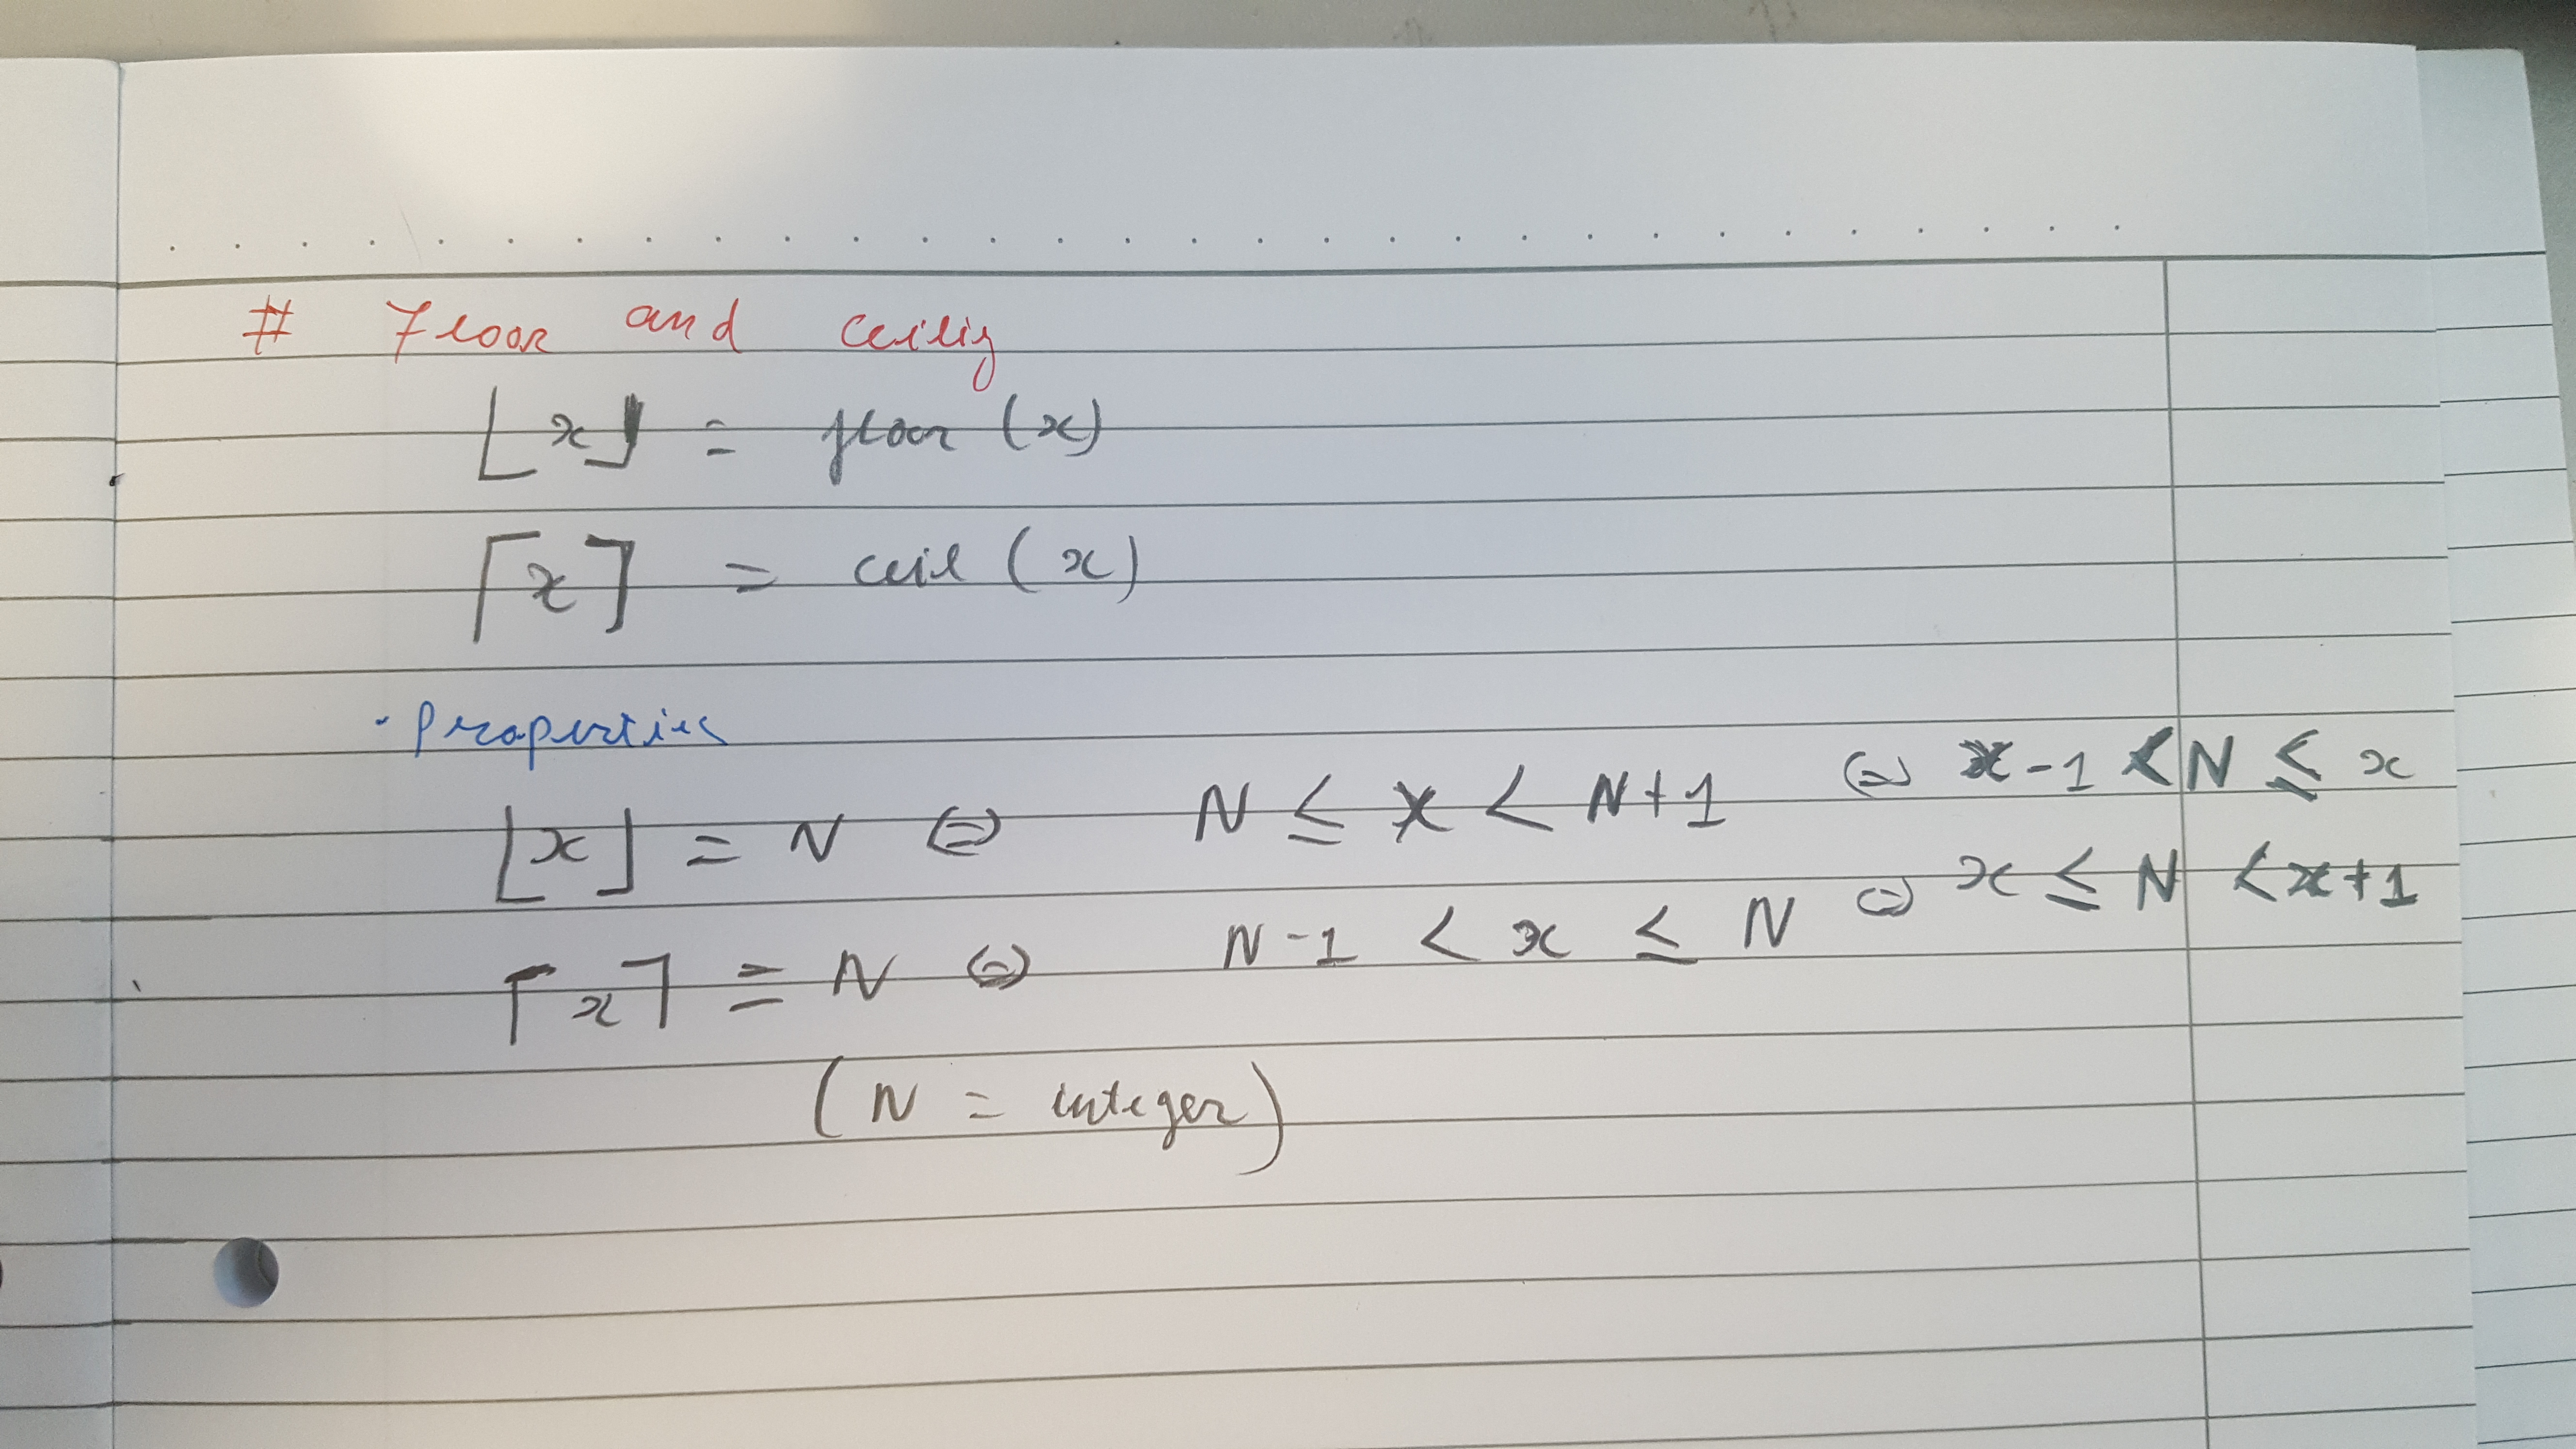 # Floor and ceilig
⌊x⌋ = floor (x)
⌈x⌉ = ceil (x)
· properties
⌊x⌋ = N (=) N ≤ x < N+1 (=) x-1 < N ≤ x
⌈x⌉ = N (=) N-1 < x ≤ N (=) x ≤ N < x+1
(N = integer)